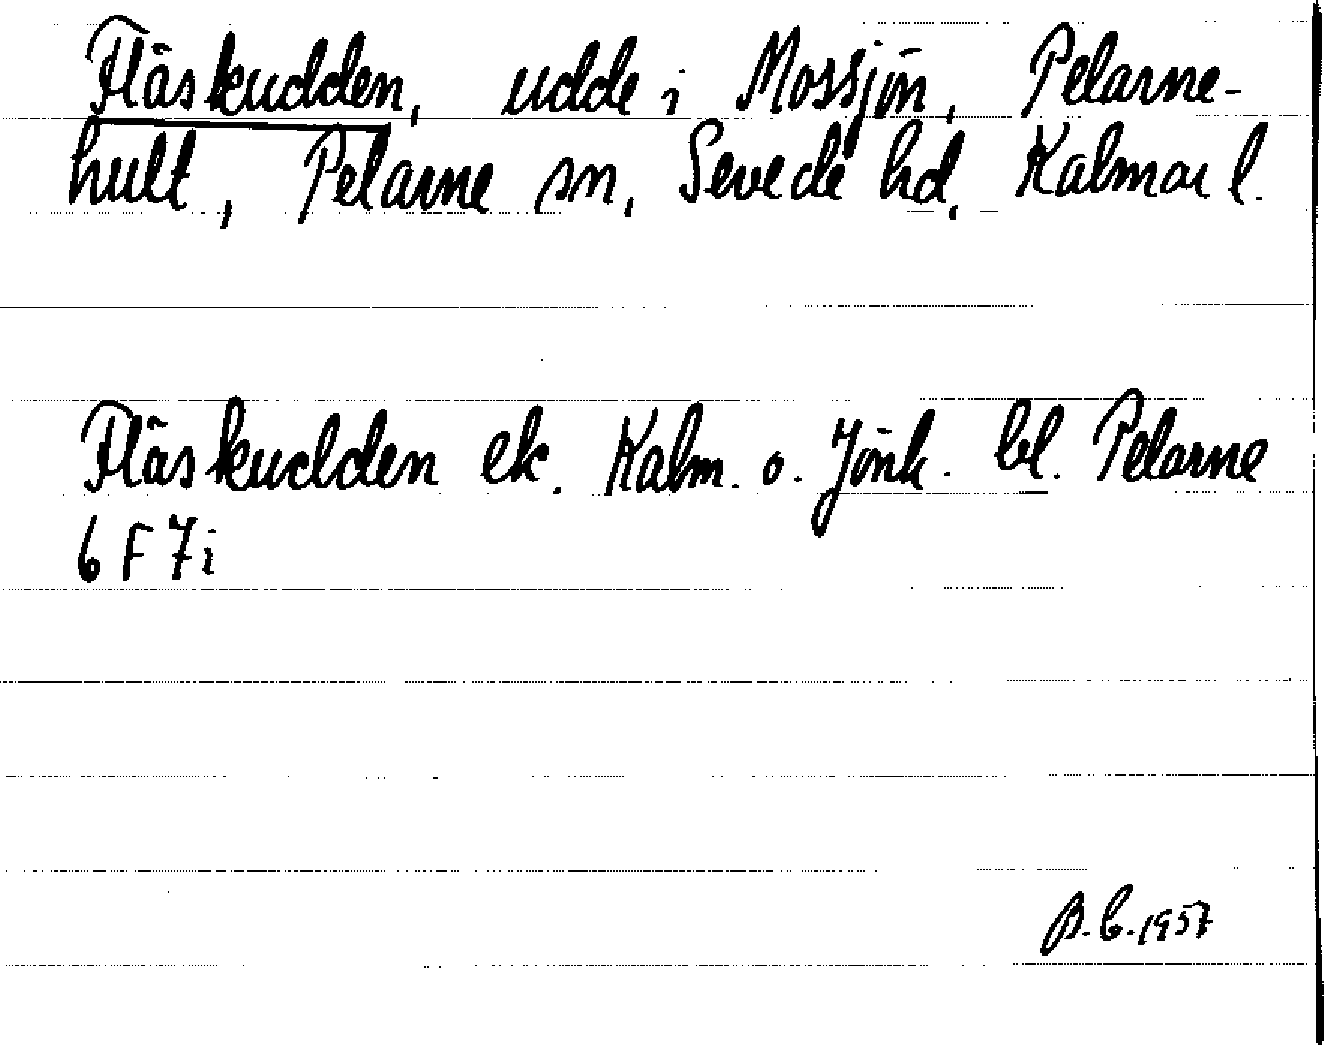 Fläskudden, udde i Mossjön, Pelarne-
hult, Pelarne sn, Sevede hd, Kalmar l.
Fläskudden ek. Kalm. o. Jönk. bl. Pelarne
6 F 7i
B.C. 1957